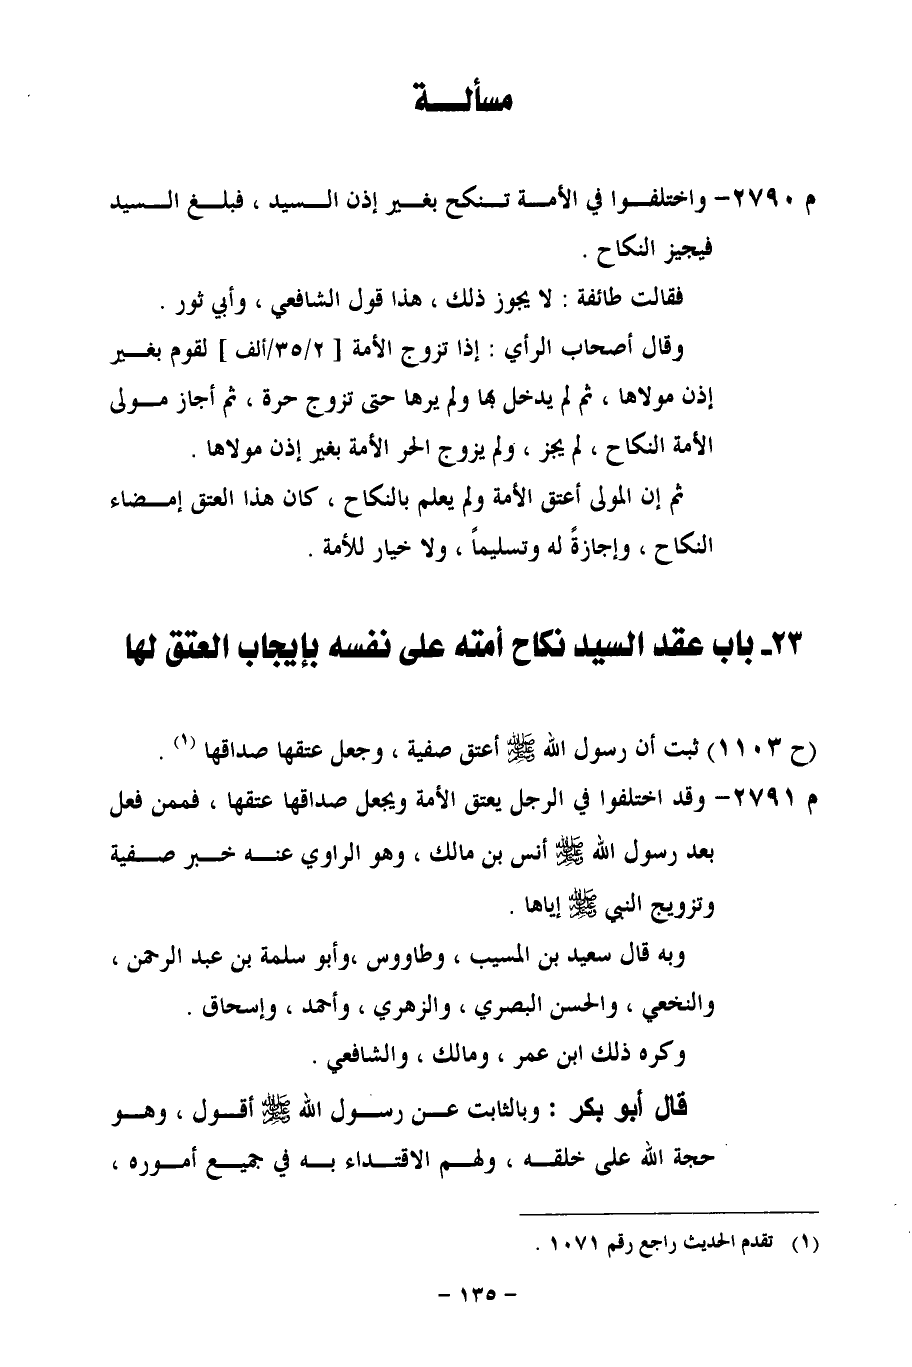 مسألة
م ٢٧٩٠- واختلفوا في الأمة تنكح بغير إذن السيد ، فبلغ السيد
فيجيز النكاح .
فقالت طائفة : لا يجوز ذلك ، هذا قول الشافعي ، وأبي ثور .
وقال أصحاب الرأي : إذا تزوج الأمة [ ٣٥/٢/ألف ] لقوم بغير
إذن مولاها ، ثم لم يدخل بها ولم يرها حتى تزوج حرة ، ثم أجاز مولى
الأمة النكاح ، لم يجز ، ولم يزوج الحر الأمة بغير إذن مولاها .
ثم إن المولى أعتق الأمة ولم يعلم بالنكاح ، كان هذا العتق إمضاء
النكاح ، وإجازةً له وتسليماً ، ولا خيار للأمة .
٢٣ـ باب عقد السيد نكاح أمته على نفسه بإيجاب العتق لها
(ح ١١٠٣) ثبت أن رسول الله ﷺ أعتق صفية ، وجعل عتقها صداقها (١) .
م ٢٧٩١- وقد اختلفوا في الرجل يعتق الأمة ويجعل صداقها عتقها ، فممن فعل
بعد رسول الله ﷺ أنس بن مالك ، وهو الراوي عنه خبر صفية
وتزويج النبي ﷺ إياها .
وبه قال سعيد بن المسيب ، وطاووس ،وأبو سلمة بن عبد الرحمن ،
والنخعي ، والحسن البصري ، والزهري ، وأحمد ، وإسحاق .
وكره ذلك ابن عمر ، ومالك ، والشافعي .
قال أبو بكر : وبالثابت عن رسول الله ﷺ أقول ، وهو
حجة الله على خلقه ، ولهم الاقتداء به في جميع أموره ،
(١) تقدم الحديث راجع رقم ١٠٧١ .
- ١٣٥ -